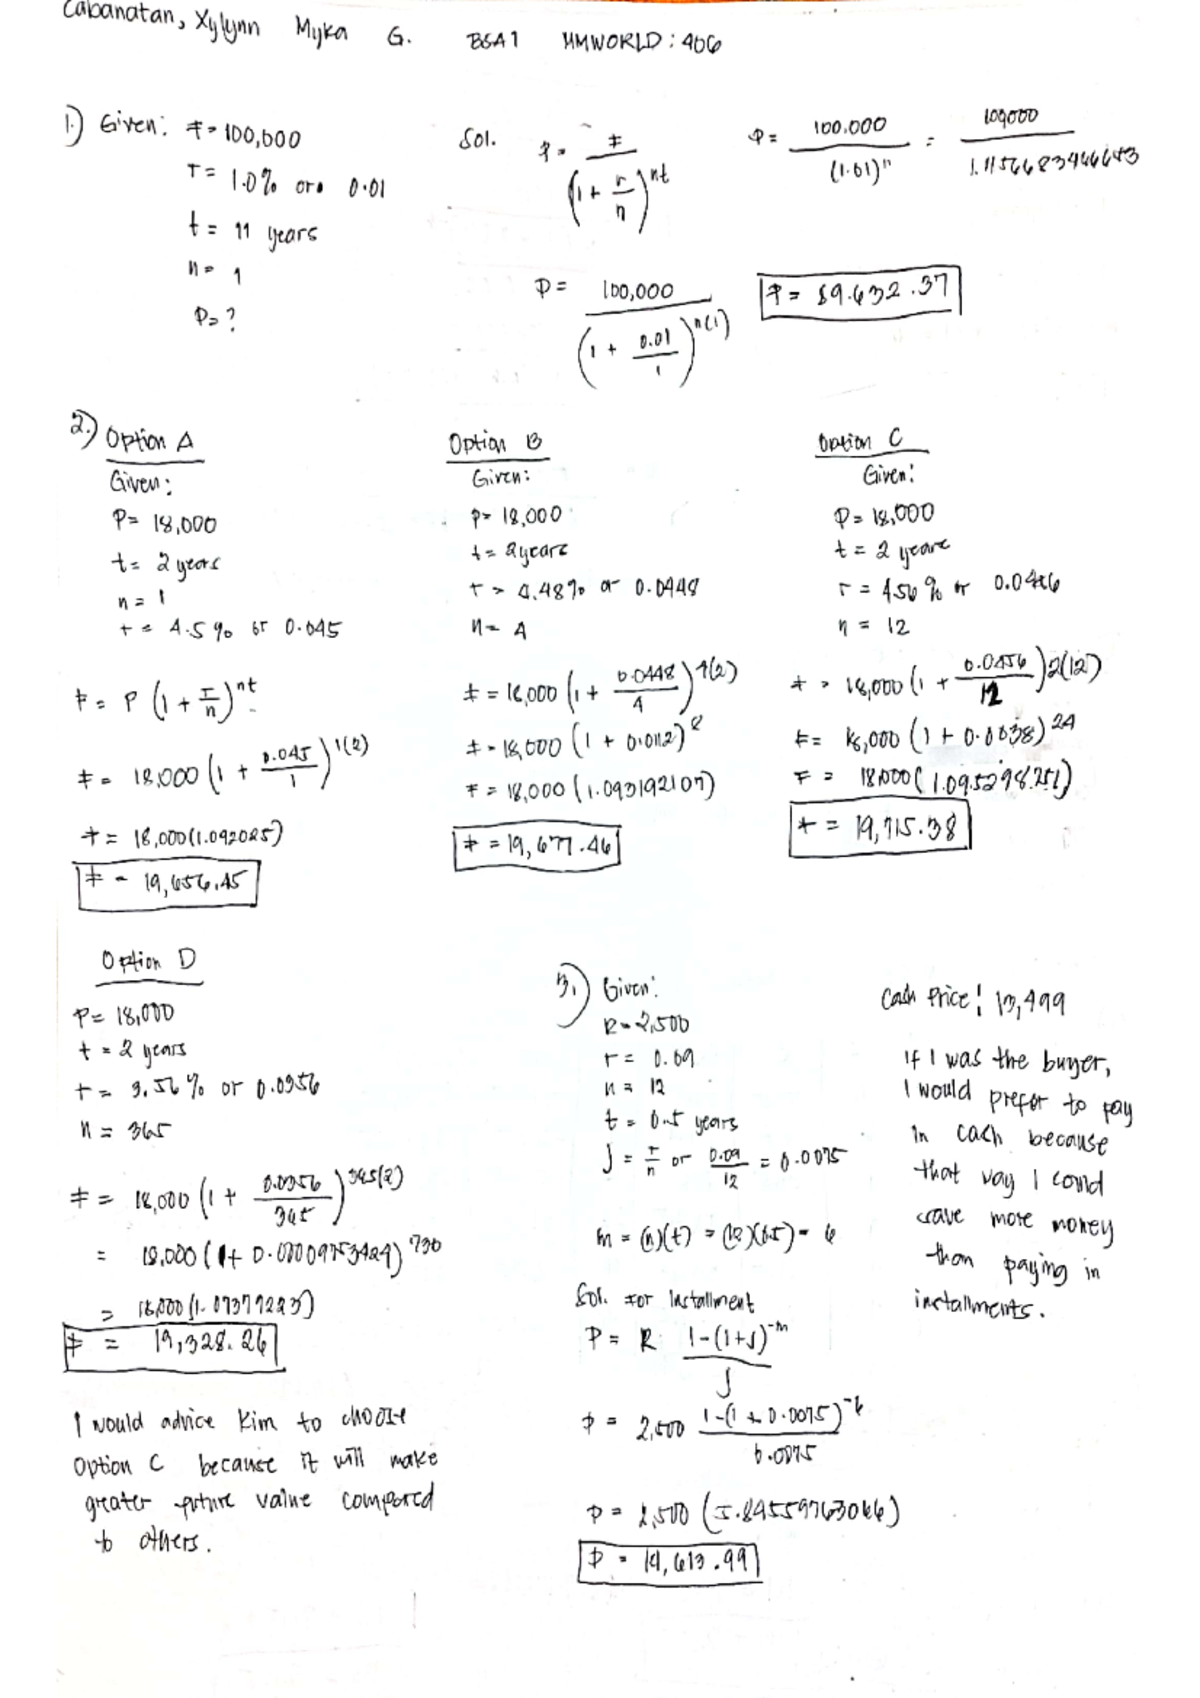 Cabanatan, Xylynn Myka G. BSA1 MMWORLD : 406
1.) Given: F = 100,000
r = 1.0% or 0.01
t = 11 years
n = 1
P = ?
Sol. P = F / (1 + r/n)^nt
P = 100,000 / (1 + 0.01/1)^11(1)
P = 100,000 / (1.01)^11 = 100000 / 1.115668346663
P = 89,632.37
2.) Option A
Given:
P = 18,000
t = 2 years
n = 1
r = 4.5% or 0.045
F = P (1 + r/n)^nt
F = 18,000 (1 + 0.045/1)^1(2)
F = 18,000 (1.092025)
F = 19,656.45
Option B
Given:
P = 18,000
t = 2 years
r = 4.48% or 0.0448
n = 4
F = 18,000 (1 + 0.0448/4)^4(2)
F = 18,000 (1 + 0.0112)^8
F = 18,000 (1.093192107)
F = 19,677.46
Option C
Given:
P = 18,000
t = 2 years
r = 4.56% or 0.0456
n = 12
F = 18,000 (1 + 0.0456/12)^2(12)
F = 18,000 (1 + 0.0038)^24
F = 18,000 (1.095298251)
F = 19,715.38
Option D
P = 18,000
t = 2 years
r = 3.56% or 0.0356
n = 365
F = 18,000 (1 + 0.0356/365)^365(2)
= 18,000 (1 + 0.00009753424)^730
= 18,000 (1.07379223)
F = 19,328.26
I would advice Kim to choose
Option C because it will make
greater future value compared
to others.
3.) Given:
R = 2,500
r = 0.09
n = 12
t = 0.5 years
J = r/n or 0.09/12 = 0.0075
m = (n)(t) = (12)(0.5) = 6
Sol. For Installment
P = R 1-(1+J)^-m / J
P = 2,500 1-(1 + 0.0075)^-6 / 0.0075
P = 2,500 (5.84559763066)
P = 14,613.99
Cash Price: 13,499
If I was the buyer,
I would prefer to pay
in cash because
that way I could
save more money
than paying in
installments.